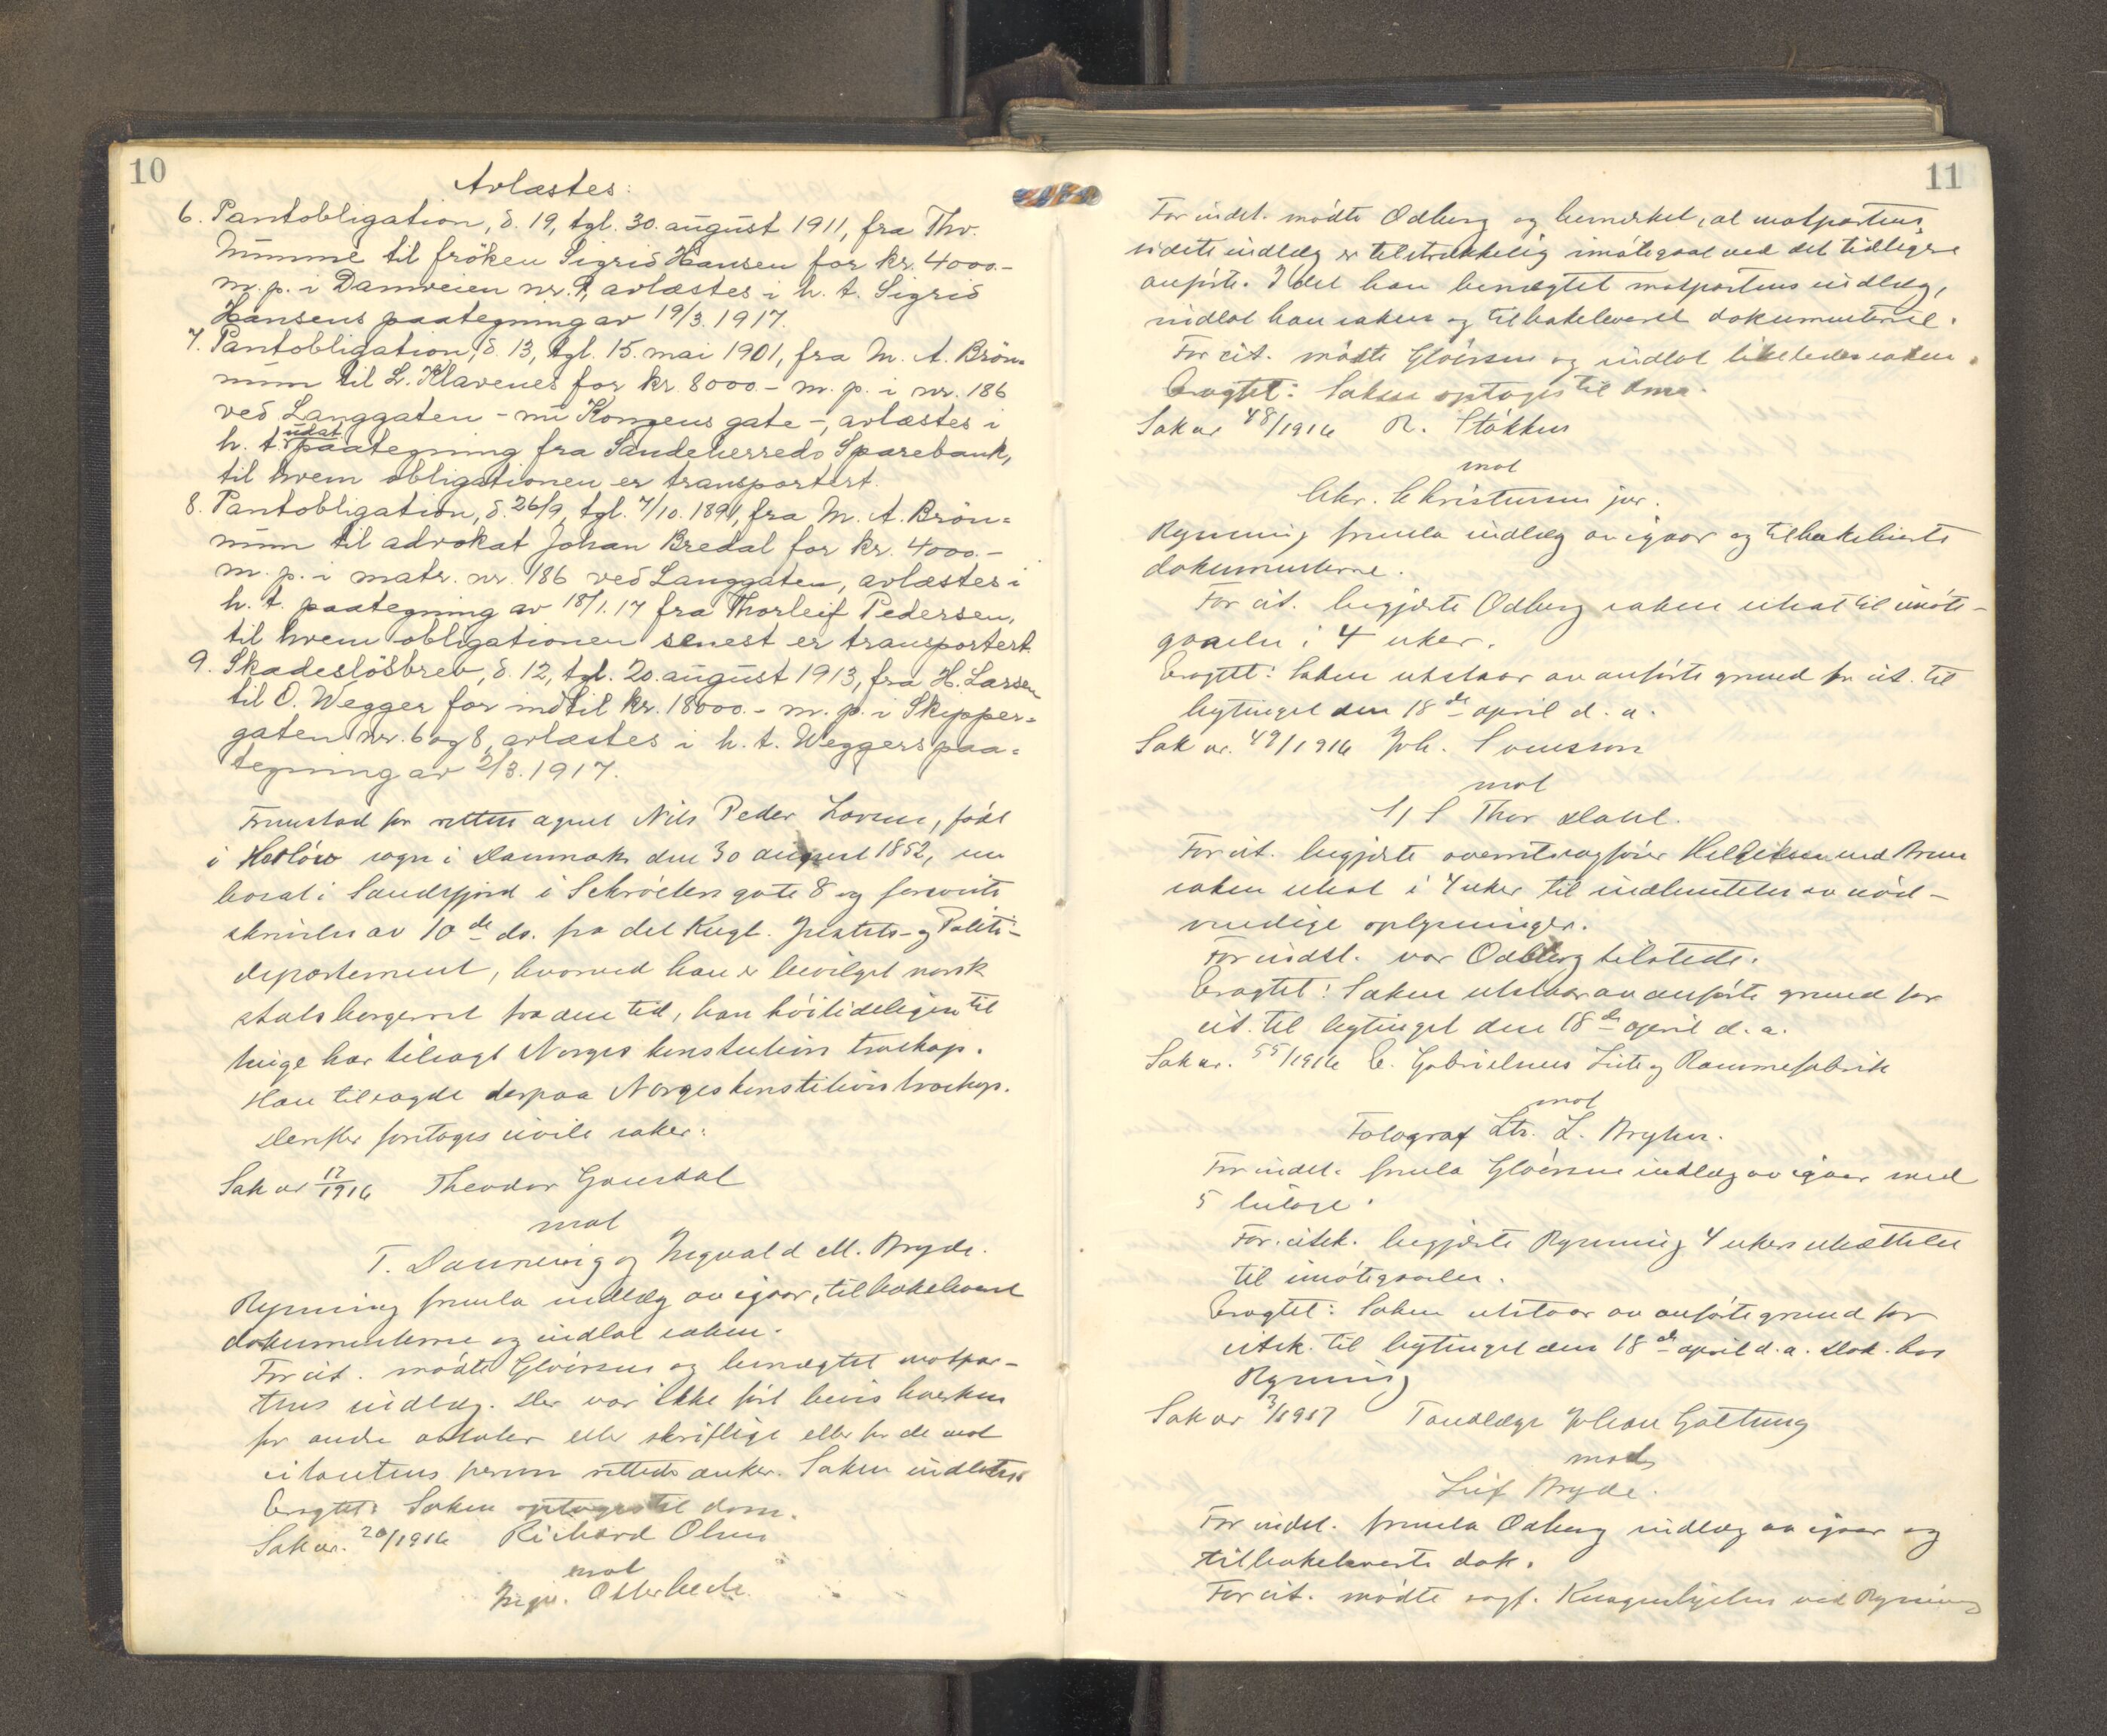 10
Avlæstes:
6. Pantobligation, d. 19, tgl. 30. august 1911, fra Thv.
Numme til fröken Sigrid Hansen for kr. 4000.-
m. p. i Damveien nr. 9, avlæstes i h. t. Sigrid
Hansens paategning av 19/3. 1917.
7. Pantobligation, d. 13, tgl. 15. mai 1901, fra M. A. Brön=
num til L. Klavenes for kr. 8000 - m. p. i nr. 186
ved Langgaten - nu Kongens gate -, avlæstes i
h. t. udat paategning fra Sandeherreds Sparebank,
til hvem obligationen er transportert.
8. Pantobligation, d. 26/9, tgl. 7/10. 1891, fra M. A. Brön=
num til advokat Johan Bredal for kr. 4000.-
m. p. i matr. nr. 186 ved Langgaten, avlæstes i
h. t. paategning av 18/1. 17 fra Thorleif Pedersen,
til hvem obligationen senest er transportert.
9. Skadeslösbrev, d. 12, tgl. 20. august 1913, fra H. Larsen
til O. Wegger for indtil kr. 18000.- m. p. i Skipper=
gaten nr. 6 og 8, avlæstes i h. t. Weggers paa=
tegning av 2/3. 1917.
Fremstod for retten agent Nils Peder Lorens, født
i sogn i Danmark den 30 august 1852, nu
bosat i Sandefjord i Schrøders gate 8 og foreviste
skrivelse av 10de ds. fra det Kngl. Justits- og Politi-
departement, hvorved han er bevilget norsk
statsborgerret fra den tid, han høitideligen til
tinge har tilsagt Norges konstitution troskap.
Han tilsagde derpaa Norges konstitution troskap.
Derefter foretages civile saker:
Sak nr 17/1916 Theodor Gausdal
mot
T. Dannevig og Ingvald M. Bryde.
Rynning fremla indlæg av igaar, tilbakeleverte
dokumenterne og indlot saken.
For cit. mødte Gløersen og benegtet motpar-
tens indlæg. Der var ikke ført bevis hverken
for andre avtaler eller skriftlige eller for de mot
citantens person rettede anker. Saken indlotes.
Eragtet: Saken optages til dom.
Sak nr. 20/1916 Richard Olsen
mot
Ingv. Otterbech.
11
For indst. mødte Odberg og bemerket, at motpartens
sidste indlæg er tilstrækkelig imøtegaat ved det tidligere
anførte. Idet han benegtet motpartens indlæg,
indlot han saken og tilbakeleverte dokumenterne.
For cit. mødte Gløersen og indlot likeledes saken.
Eragtet: Saken optages til doms.
Sak nr 48/1916 R. Støkken
mot
Chr. Christensen jnr.
Rynning fremla indlæg av igaar og tilbakeleverte
dokumenterne.
For cit. begjærte Odberg saken utsat til imøte-
gaaelse i 4 uker.
Eragtet: Saken utstaar av anførte grund for cit. til
bytinget den 18de april d. a.
Sak nr. 49/1916 Joh. Svensson
mot
A/S Thor Dahl.
For cit. begjærte overretssagfører Hillgiksen ved Bruu
saken utsat i 4 uker til indhentelse av nød-
vendige oplysninger.
For indst. var Odberg tilstede.
Eragtet: Saken utstaar av anførte grund for
cit. til bytinget den 18de april d. a.
Sak nr. 55/1916 E. Gabrielsens Liste og Rammefabrik
mot
Fotograf Chr. L. Bryhn.
For indst. fremla Gløersen indlæg av igaar med
5 bilage.
For citsk. begjærte Rynning 4 ukers utsættelse
til imøtegaaelse.
Eragtet: Saken utstaar av anførte grund for
citsk. til bytinget den 18de april d. a. Dok. hos
Rynning
Sak nr 3/1917 Tandlæge Johan Galtung
mot
Leif Bryde.
For indst. fremla Odberg indlæg av igaar og
tilbakeleverte dok.
For cit. mødte sagf. Knagenhjelm ved Rynning